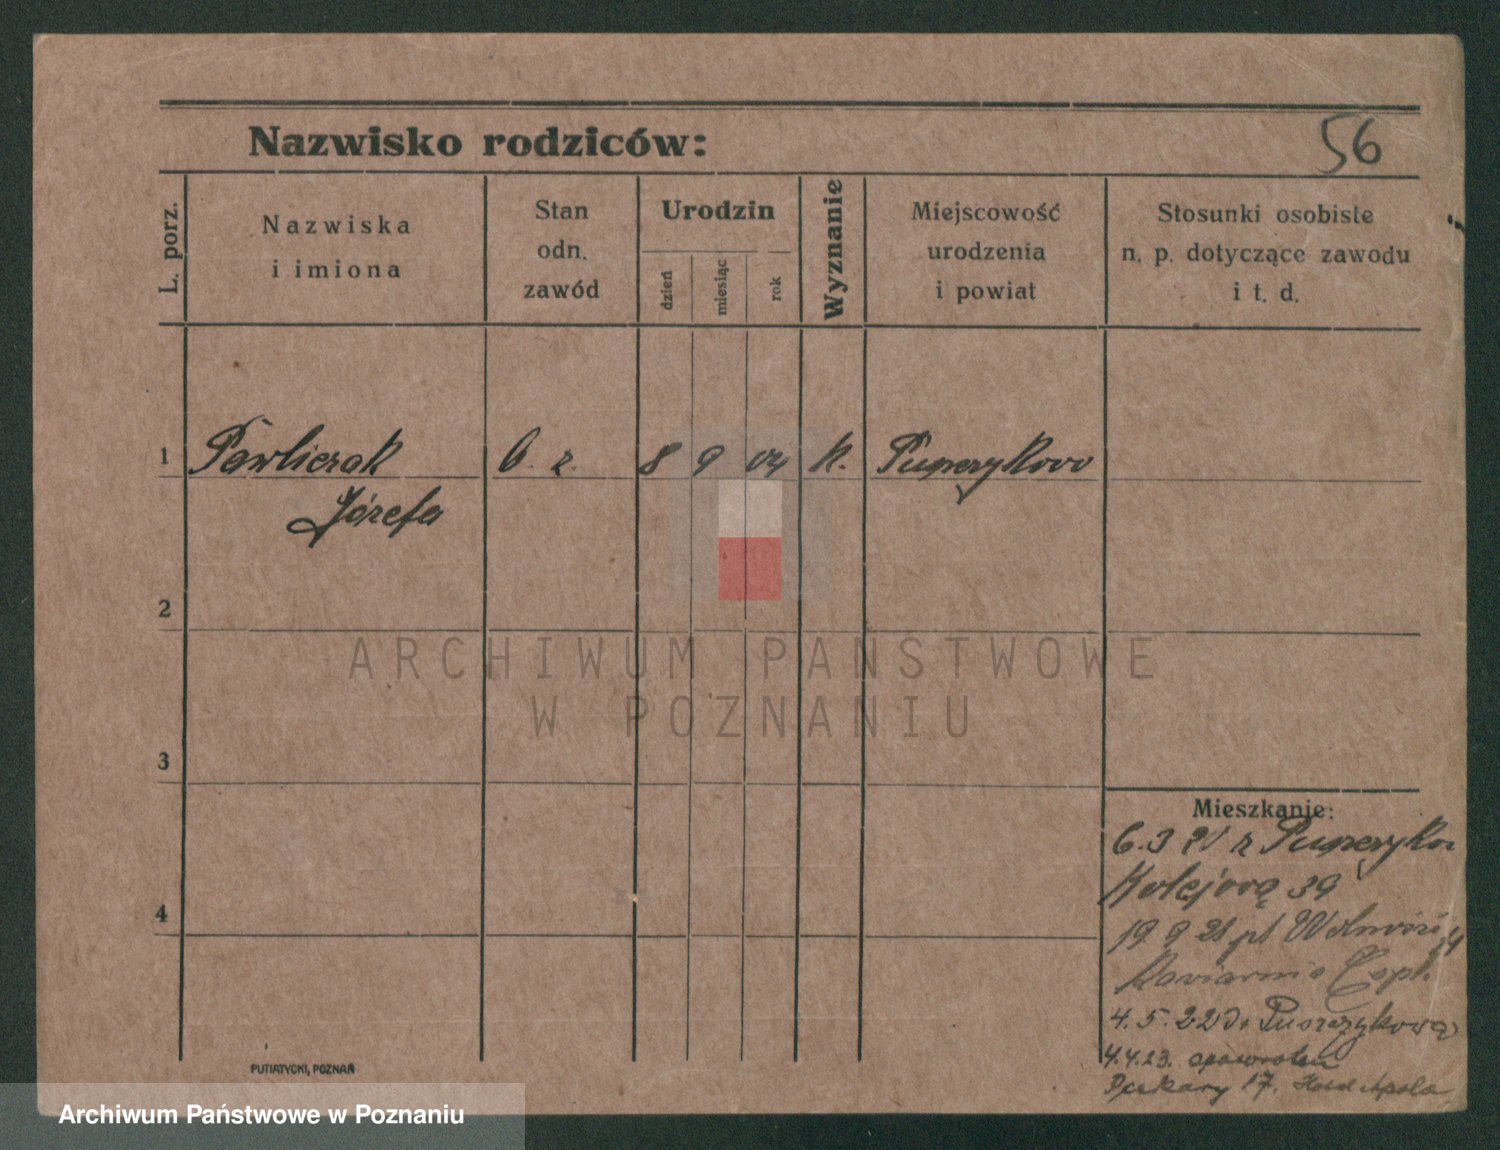 Nazwisko rodziców:
56
L. porz.
Nazwiska
i imiona
Stan
odn.
zawód
Urodzin
dzień
miesiąc
rok
Wyznanie
Miejscowość
urodzenia
i powiat
Stosunki osobiste
n. p. dotyczące zawodu
i t. d.
1 Pawliczak 8 9 04 k. Puszczykowo
Józefa
2
ARCHIWUM PAŃSTWOWE
W POZNANIU
3
Mieszkanie:
6.3 21 z Puszczyko
Kolejową 39
4
19 9 21 pl Wolności
Kawiarnia
4.5.22 do Puszczykowa
4.4.23. spowrotem
Piekary 17. Hotel Apolo
PUTIATYCKI, POZNAŃ
Archiwum Państwowe w Poznaniu